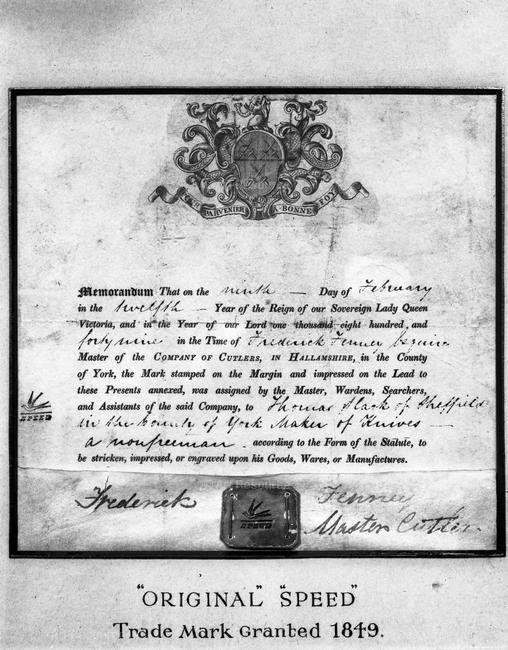 POUR PARVENIR A BONNE FOY
Memorandum That on the ninth — Day of February
in the twelfth — Year of the Reign of our Sovereign Lady Queen
Victoria, and in the Year of our Lord one thousand eight hundred, and
forty nine in the Time of Frederick Fenney Esquire
Master of the COMPANY OF CUTLERS, IN HALLAMSHIRE, in the County
of York, the Mark stamped on the Margin and impressed on the Lead to
these Presents annexed, was assigned by the Master, Wardens, Searchers,
and Assistants of the said Company, to Thomas Slack of Sheffield
in the County of York Maker of Knives —
a nonfreeman - according to the Form of the Statute, to
be stricken, impressed, or engraved upon his Goods, Wares, or Manufactures.
SPEED
Frederick Fenney
Master Cutler
SPEED
"ORIGINAL" "SPEED"
Trade Mark Granted 1849.